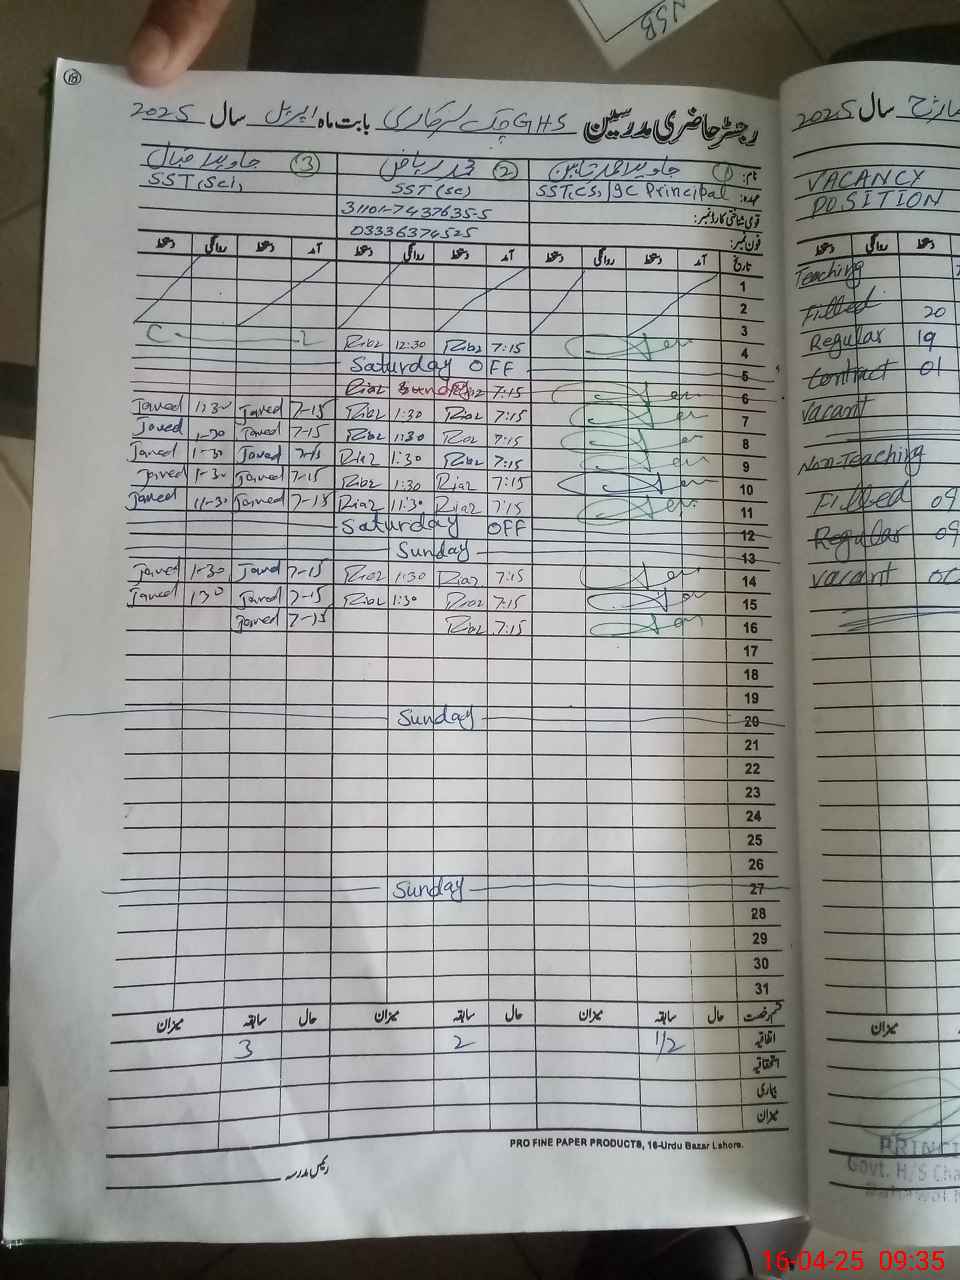 NSB
18
رجسٹر حاضری مدرسین GHS چک سرکاری بابت ماہ اپریل سال 2025
نام: 1 جاوید احمد 2 محمد ریاض 3 جاوید اقبال
عہدہ: SST(CS)/IC Principal SST(SC) SST(SCI)
قومی شناختی کارڈ نمبر: 31101-7437635-5
فون نمبر: 03336374525
تاریخ آمد دستخط روانگی دستخط آمد دستخط روانگی دستخط آمد دستخط روانگی دستخط
1
2
3
C L Riaz 12:30 Riaz 7:15 4
Saturday OFF 5
Riaz Sunday Riaz 7:15 6
Javed 1:30 Javed 7-15 Riaz 1:30 Riaz 7:15 7
Javed 1-30 Javed 7-15 Riaz 1:30 Riaz 7:15 8
Javed 1-30 Javed 7-15 Riaz 1:30 Riaz 7:15 9
Javed 1-30 Javed 7-15 Riaz 1:30 Riaz 7:15 10
Javed 11-30 Javed 7-15 Riaz 11:30 Riaz 7:15 11
Saturday OFF 12
Sunday 13
Javed 1-30 Javed 7-15 Riaz 1:30 Riaz 7:15 14
Javed 1:30 Javed 7-15 Riaz 1:30 Riaz 7:15 15
Javed 7-15 Riaz 7:15 16
17
18
19
Sunday 20
21
22
23
24
25
26
Sunday 27
28
29
30
31
قسم رخصت حال سابقہ میزان حال سابقہ میزان حال سابقہ میزان
اتفاقیہ 1/2 2 3
استحقاقیہ
بیماری
میزان
PRO FINE PAPER PRODUCTS, 16-Urdu Bazar Lahore.
رئیس مدرسہ
مارچ سال 2025
VACANCY
POSITION
دستخط روانگی دستخط
Teaching
Filled 20
Regular 19
Contract 01
Vacant
Non-Teaching
Filled 09
Regular 09
Vacant 00
میزان
PRINCI
Govt. H/S Cha
Bahawal
16-04-25 09:35